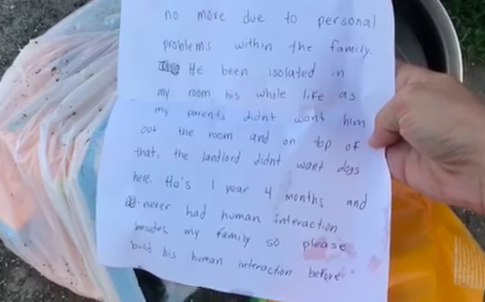 no more due to personal
problems within the family.
He been isolated in
my room his whole life as
my parents didnt want him
out the room and on top of
that, the landlord didnt want dogs
here. He's 1 year 4 months and
never had human interaction
besides my family so please
build his human interaction before